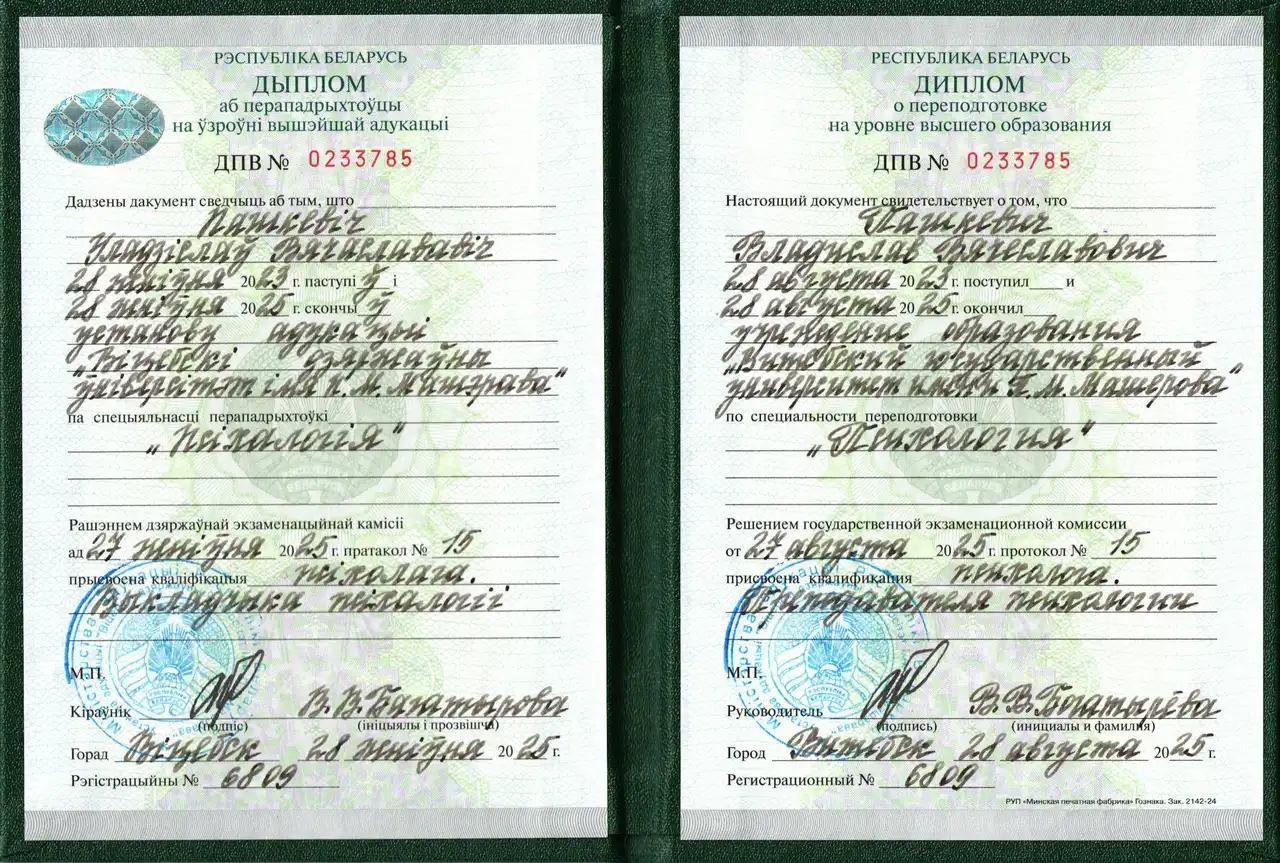 РЭСПУБЛІКА БЕЛАРУСЬ
ДЫПЛОМ
аб перападрыхтоўцы
на ўзроўні вышэйшай адукацыі
ДПВ № 0233785
Дадзены дакумент сведчыць аб тым, што
Пашкевіч
Уладзіслаў Вячаслававіч
28 жніўня 2023 г. паступі ў і
28 жніўня 2025 г. скончы ў
установу адукацыі
„Віцебскі дзяржаўны
ўніверсітэт імя П.М. Машэрава“
па спецыяльнасці перападрыхтоўкі
„Псіхалогія“
Рашэннем дзяржаўнай экзаменацыйнай камісіі
ад 27 жніўня 2025 г. пратакол № 15
прысвоена кваліфікацыя псіхолага.
Выкладчыка псіхалогіі
М.П.
Кіраўнік В.В.Багатырова
(подпіс) (ініцыялы і прозвішча)
Горад Віцебск 28 жніўня 2025 г.
Рэгістрацыйны № 6809
РЕСПУБЛИКА БЕЛАРУСЬ
ДИПЛОМ
о переподготовке
на уровне высшего образования
ДПВ № 0233785
Настоящий документ свидетельствует о том, что
Пашкевич
Владислав Вячеславович
28 августа 2023 г. поступил и
28 августа 2025 г. окончил
учреждение образования
„Витебский государственный
университет имени П.М. Машерова“
по специальности переподготовки
„Психология“
Решением государственной экзаменационной комиссии
от 27 августа 2025 г. протокол № 15
присвоена квалификация психолога.
Преподавателя психологии
М.П.
Руководитель В.В.Богатырёва
(подпись) (инициалы и фамилия)
Город Витебск 28 августа 2025 г.
Регистрационный № 6809
РУП «Минская печатная фабрика» Гознака. Зак. 2142-24